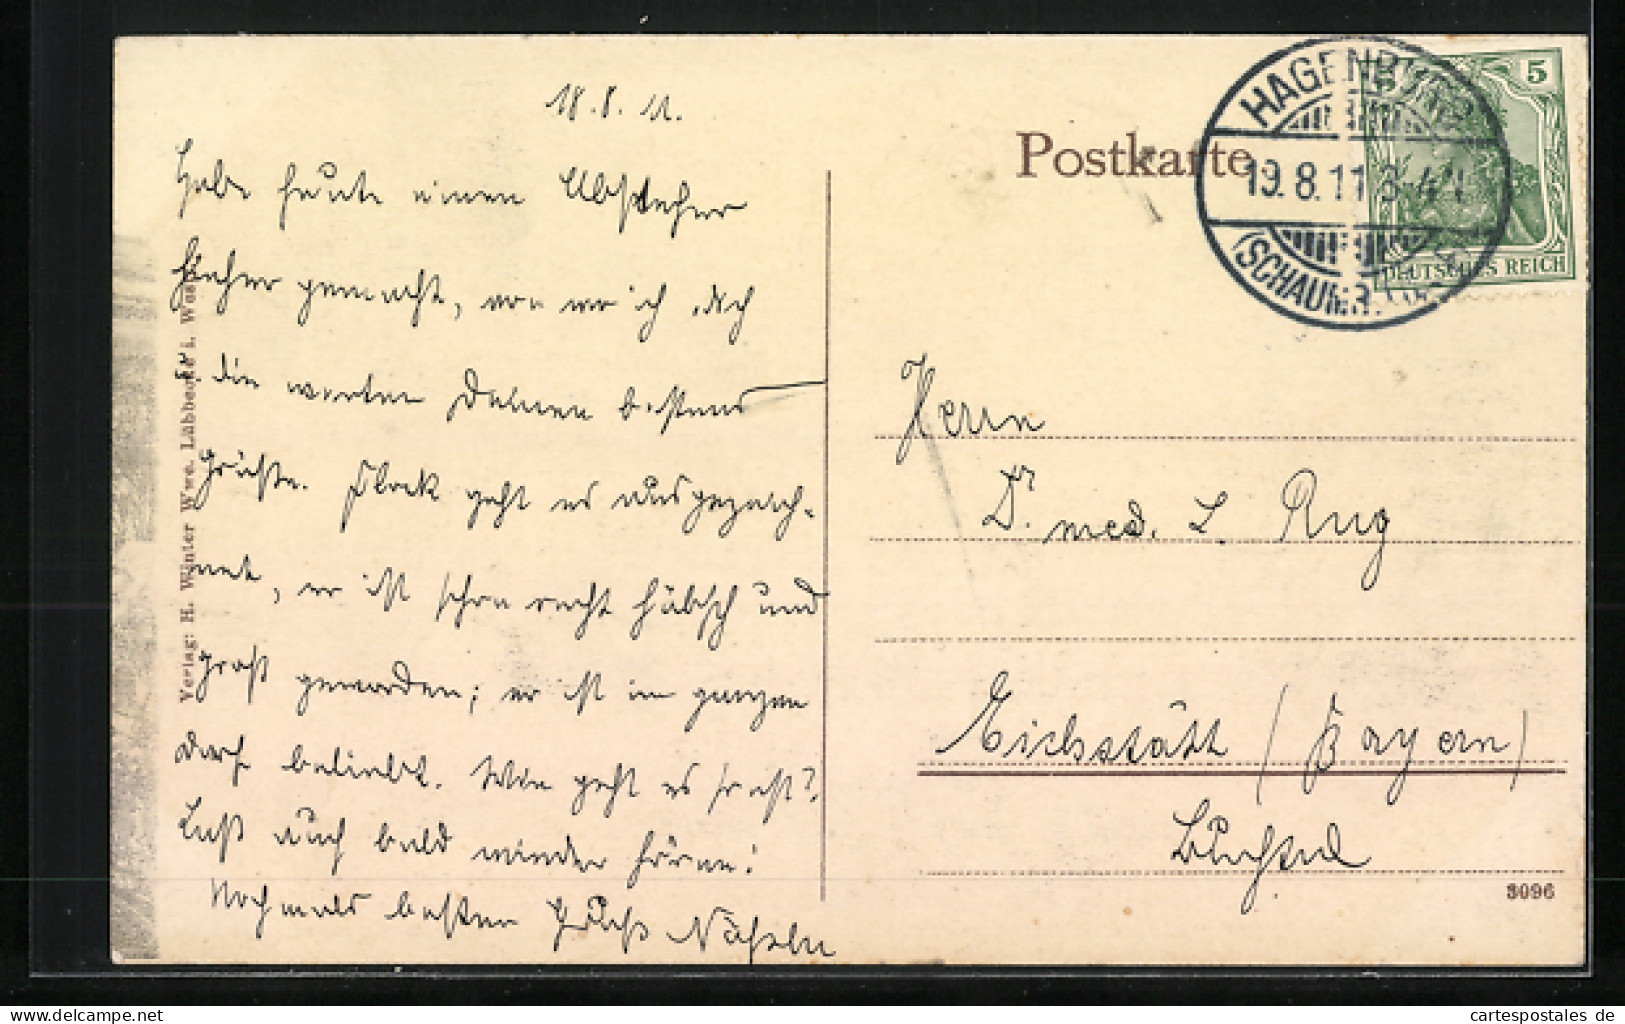 18.8.11.
Habe heute einen Abstecher
hieher gemacht, von wo ich dich
die werten Deinen bestens
grüße. geht es ausgezeich-
net, er ist schon recht hübsch und
groß geworden; er ist im ganzen
Dorf beliebt. Wie geht es sonst?
Laß auch bald wieder hören!
Nochmals besten Gruß
Verlag: H. Winter Wwe. Lübbecke i. West
Postkarte
HAGENBURG
19.8.11
(SCHAUMB.
5
DEUTSCHES REICH
Herrn
Dr. med. L. Rug
Eichstätt (Bayern)
3096
cartespostales.de
cartespostales de